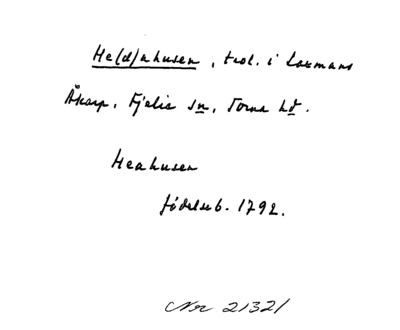 He(d)ahusen, trol. i Laxmans
Åkarp, Fjelie sn, Torna hd.
Heahusen
födelseb. 1792.
Nr 21321